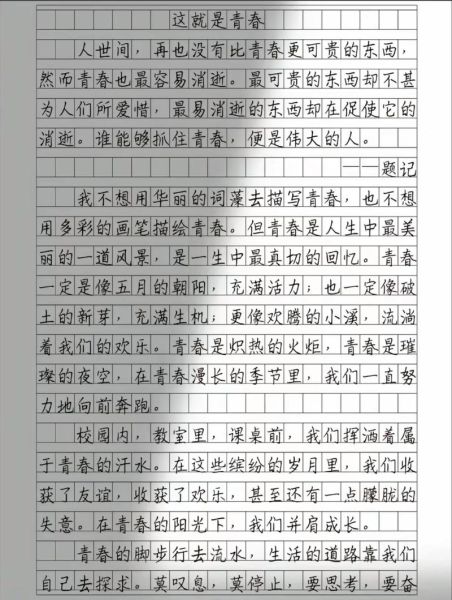 这就是青春
人世间，再也没有比青春更可贵的东西，
然而青春也最容易消逝。最可贵的东西却不甚
为人们所爱惜，最易消逝的东西却在促使它的
消逝。谁能够抓住青春，便是伟大的人。
——题记
我不想用华丽的词藻去描写青春，也不想
用多彩的画笔描绘青春。但青春是人生中最美
丽的一道风景，是一生中最真切的回忆。青春
一定是像五月的朝阳，充满活力；也一定像破
土的新芽，充满生机；更像欢腾的小溪，流淌
着我们的欢乐。青春是炽热的火炬，青春是璀
璨的夜空，在青春漫长的季节里，我们一直努
力地向前奔跑。
校园内，教室里，课桌前，我们挥洒着属
于青春的汗水。在这些缤纷的岁月里，我们收
获了友谊，收获了欢乐，甚至还有一点朦胧的
失意。在青春的阳光下，我们并肩成长。
青春的脚步行去流水，生活的道路靠我们
自己去探求。莫叹息，莫停止，要思考，要奋